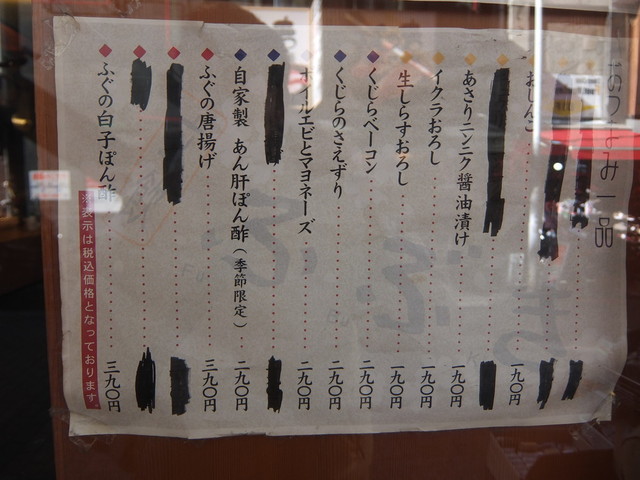 おつまみ一品
おしんこ 一九〇円
あさりニンニク醤油漬け 一九〇円
イクラおろし 一九〇円
生しらすおろし 一九〇円
くじらベーコン 二九〇円
くじらのさえずり 二九〇円
ボイルエビとマヨネーズ 二九〇円
自家製 あん肝ぽん酢(季節限定) 二九〇円
ふぐの唐揚げ 三九〇円
ふぐの白子ぽん酢 三九〇円
※表示は税込価格となっております。